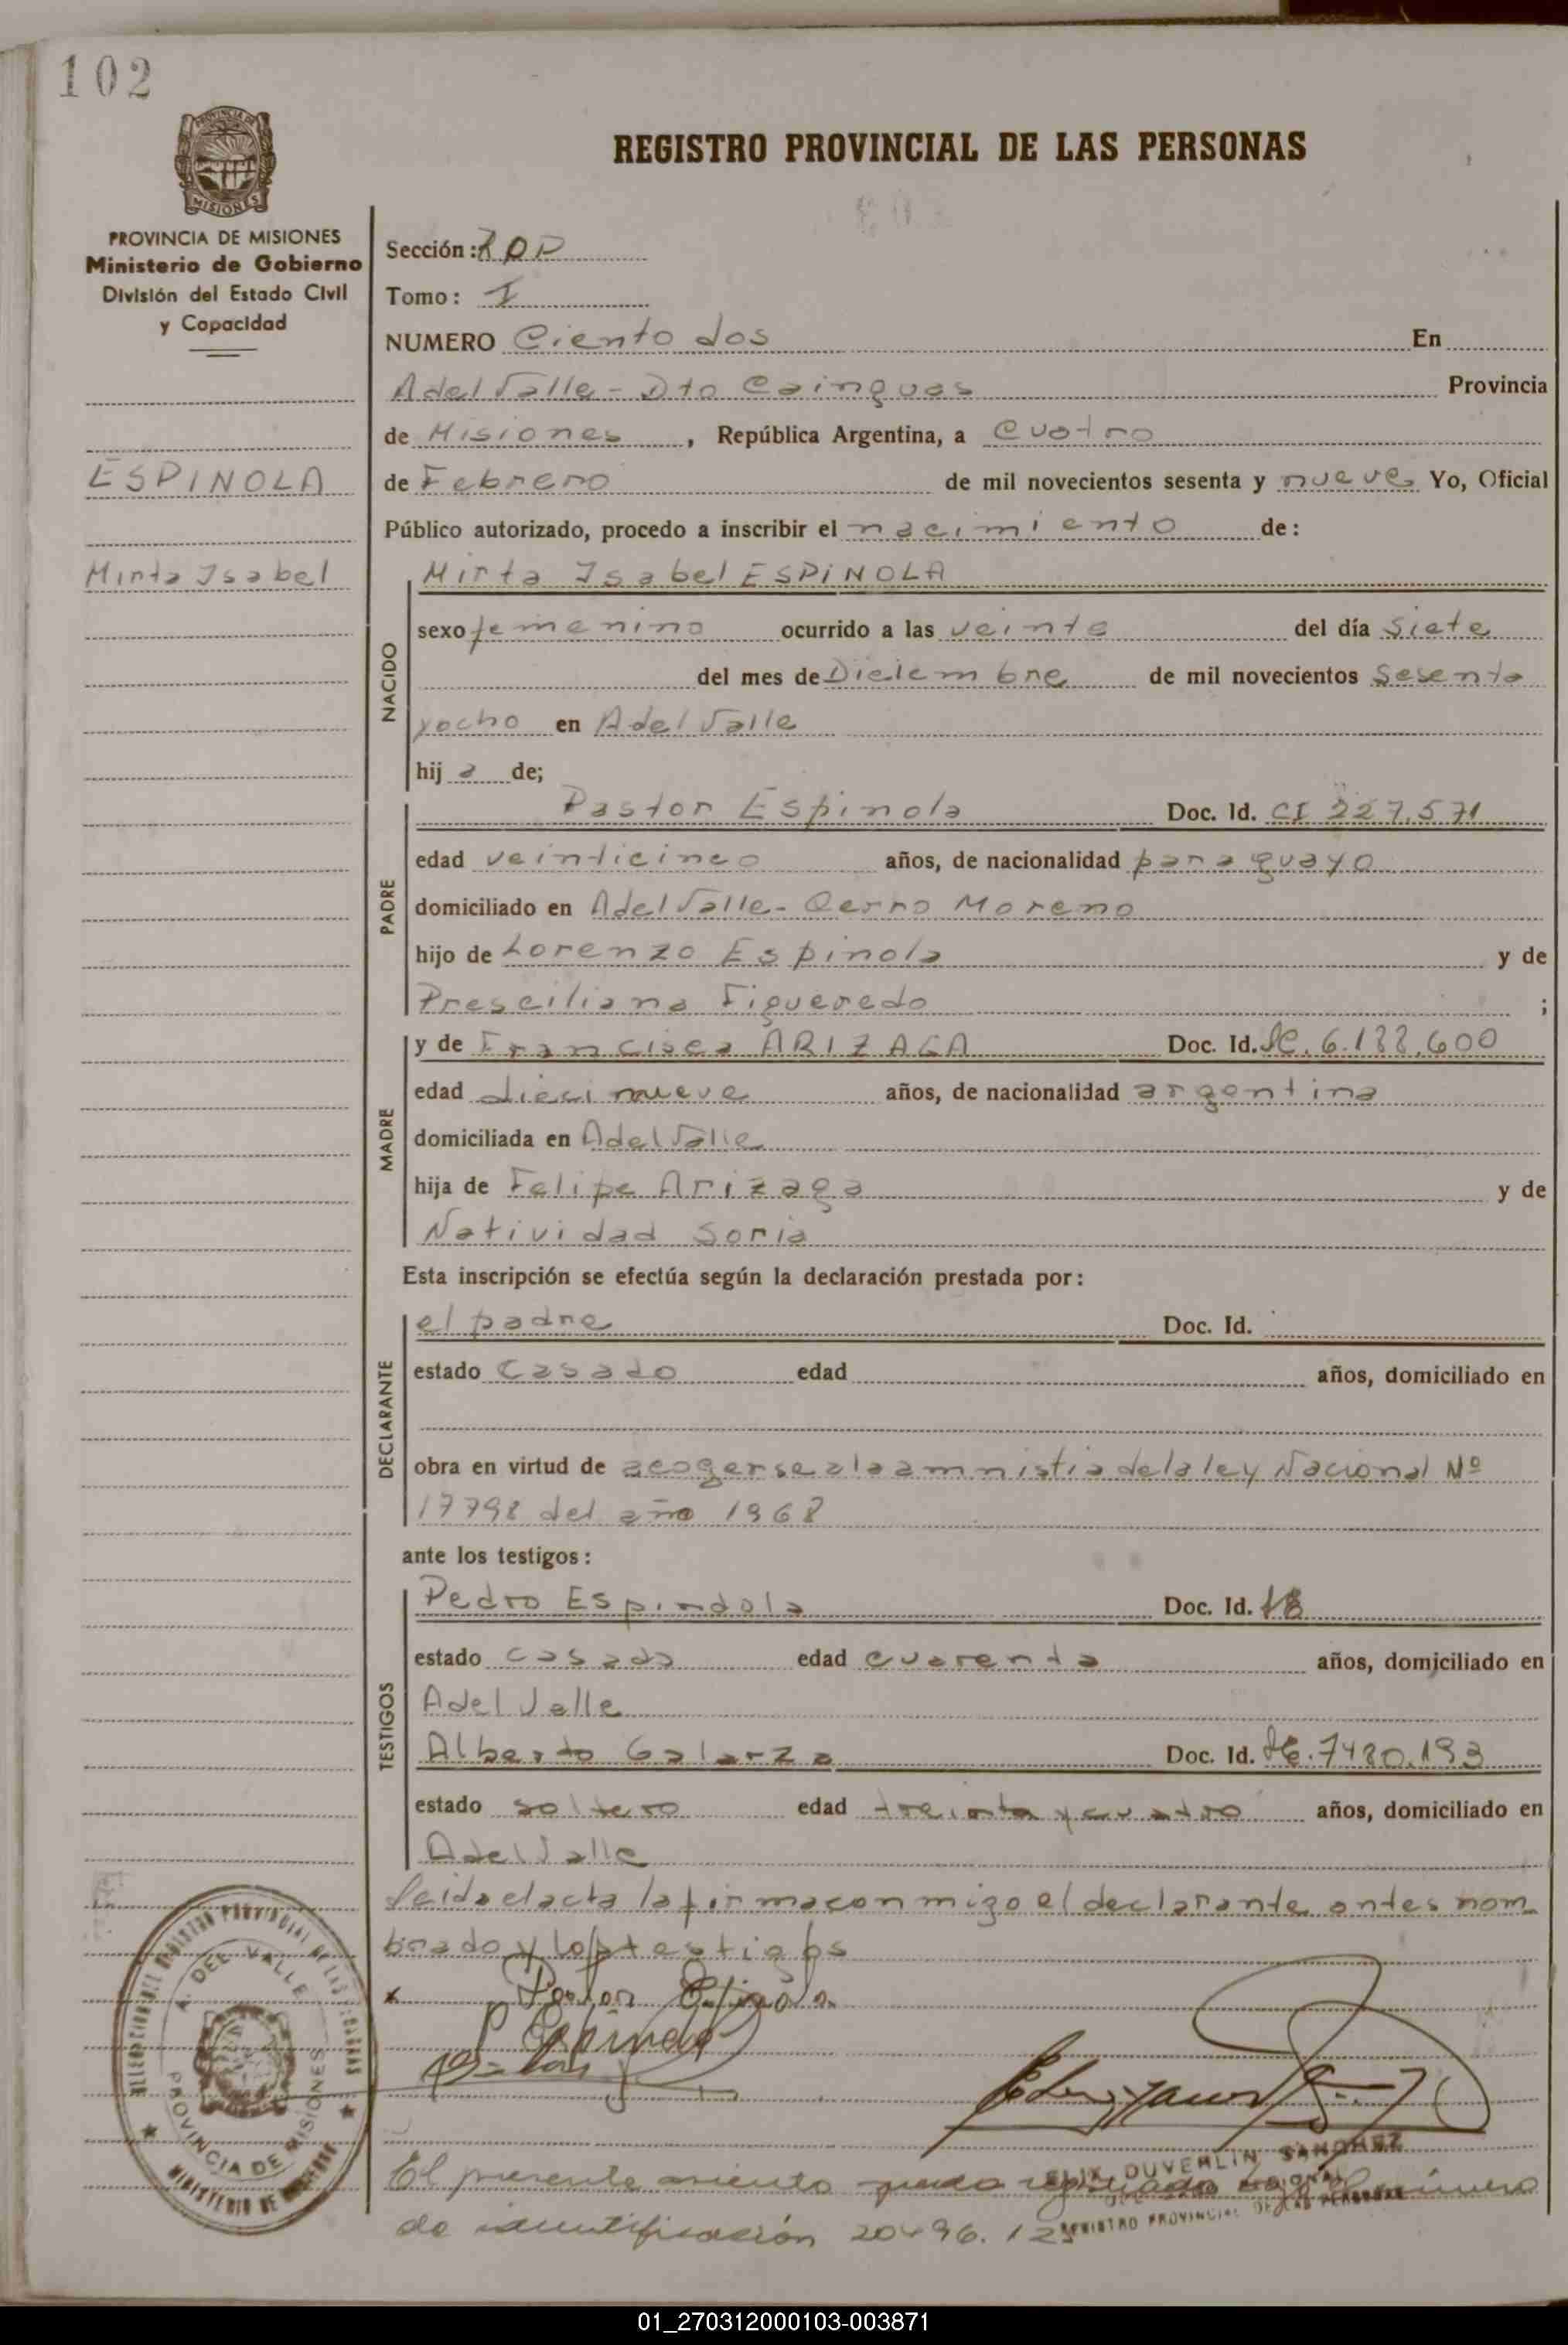 102
PROVINCIA DE MISIONES
MISIONES
REGISTRO PROVINCIAL DE LAS PERSONAS
PROVINCIA DE MISIONES
Ministerio de Gobierno
División del Estado Civil
y Capacidad
ESPINOLA
Mirta Isabel
Sección :
Tomo: I
NUMERO Ciento dos En
A del Valle - Dto Cainguas Provincia
de Misiones, República Argentina, a Cuatro
de Febrero de mil novecientos sesenta y nueve Yo, Oficial
Público autorizado, procedo a inscribir el nacimiento de:
NACIDO
Mirta Isabel ESPINOLA
sexo femenino ocurrido a las veinte del día Siete
del mes de Dieiembre de mil novecientos Sesenta
yocho en A del Valle
hij a de;
PADRE
Pastor Espinola Doc. Id. CI 227.571
edad veinticinco años, de nacionalidad paraguayo
domiciliado en A del Valle - Cerro Moreno
hijo de Lorenzo Espinola y de
Presciliana Figueredo ;
MADRE
y de Francisca ARIZAGA Doc. Id. LC. 6.188.600
edad diecinueve años, de nacionalidad argentina
domiciliada en A del Valle
hija de Felipe Arizaga y de
Natividad Soria
Esta inscripción se efectúa según la declaración prestada por:
DECLARANTE
el padre Doc. Id.
estado Casado edad años, domiciliado en
obra en virtud de acogerse a la amnistia de la ley Nacional Nº
17798 del año 1968
ante los testigos:
TESTIGOS
Pedro Espindola Doc. Id.
estado casado edad cuarenta años, domiciliado en
A del Valle
Alberto Galarza Doc. Id. LE. 7480.193
estado soltero edad treinta y cuatro años, domiciliado en
A del Valle
Leida el acta la firma conmigo el declarante antes nom
brado y los testigos
x Pastor Espinola
P Espindola
A. DEL VALLE
PROVINCIA DE MISIONES
DUVERLIN SANCHEZ
REGISTRO PROVINCIAL DE LAS PERSONAS
El presente asiento queda registrado bajo el número
de identificación 20496.12
01_270312000103-003871